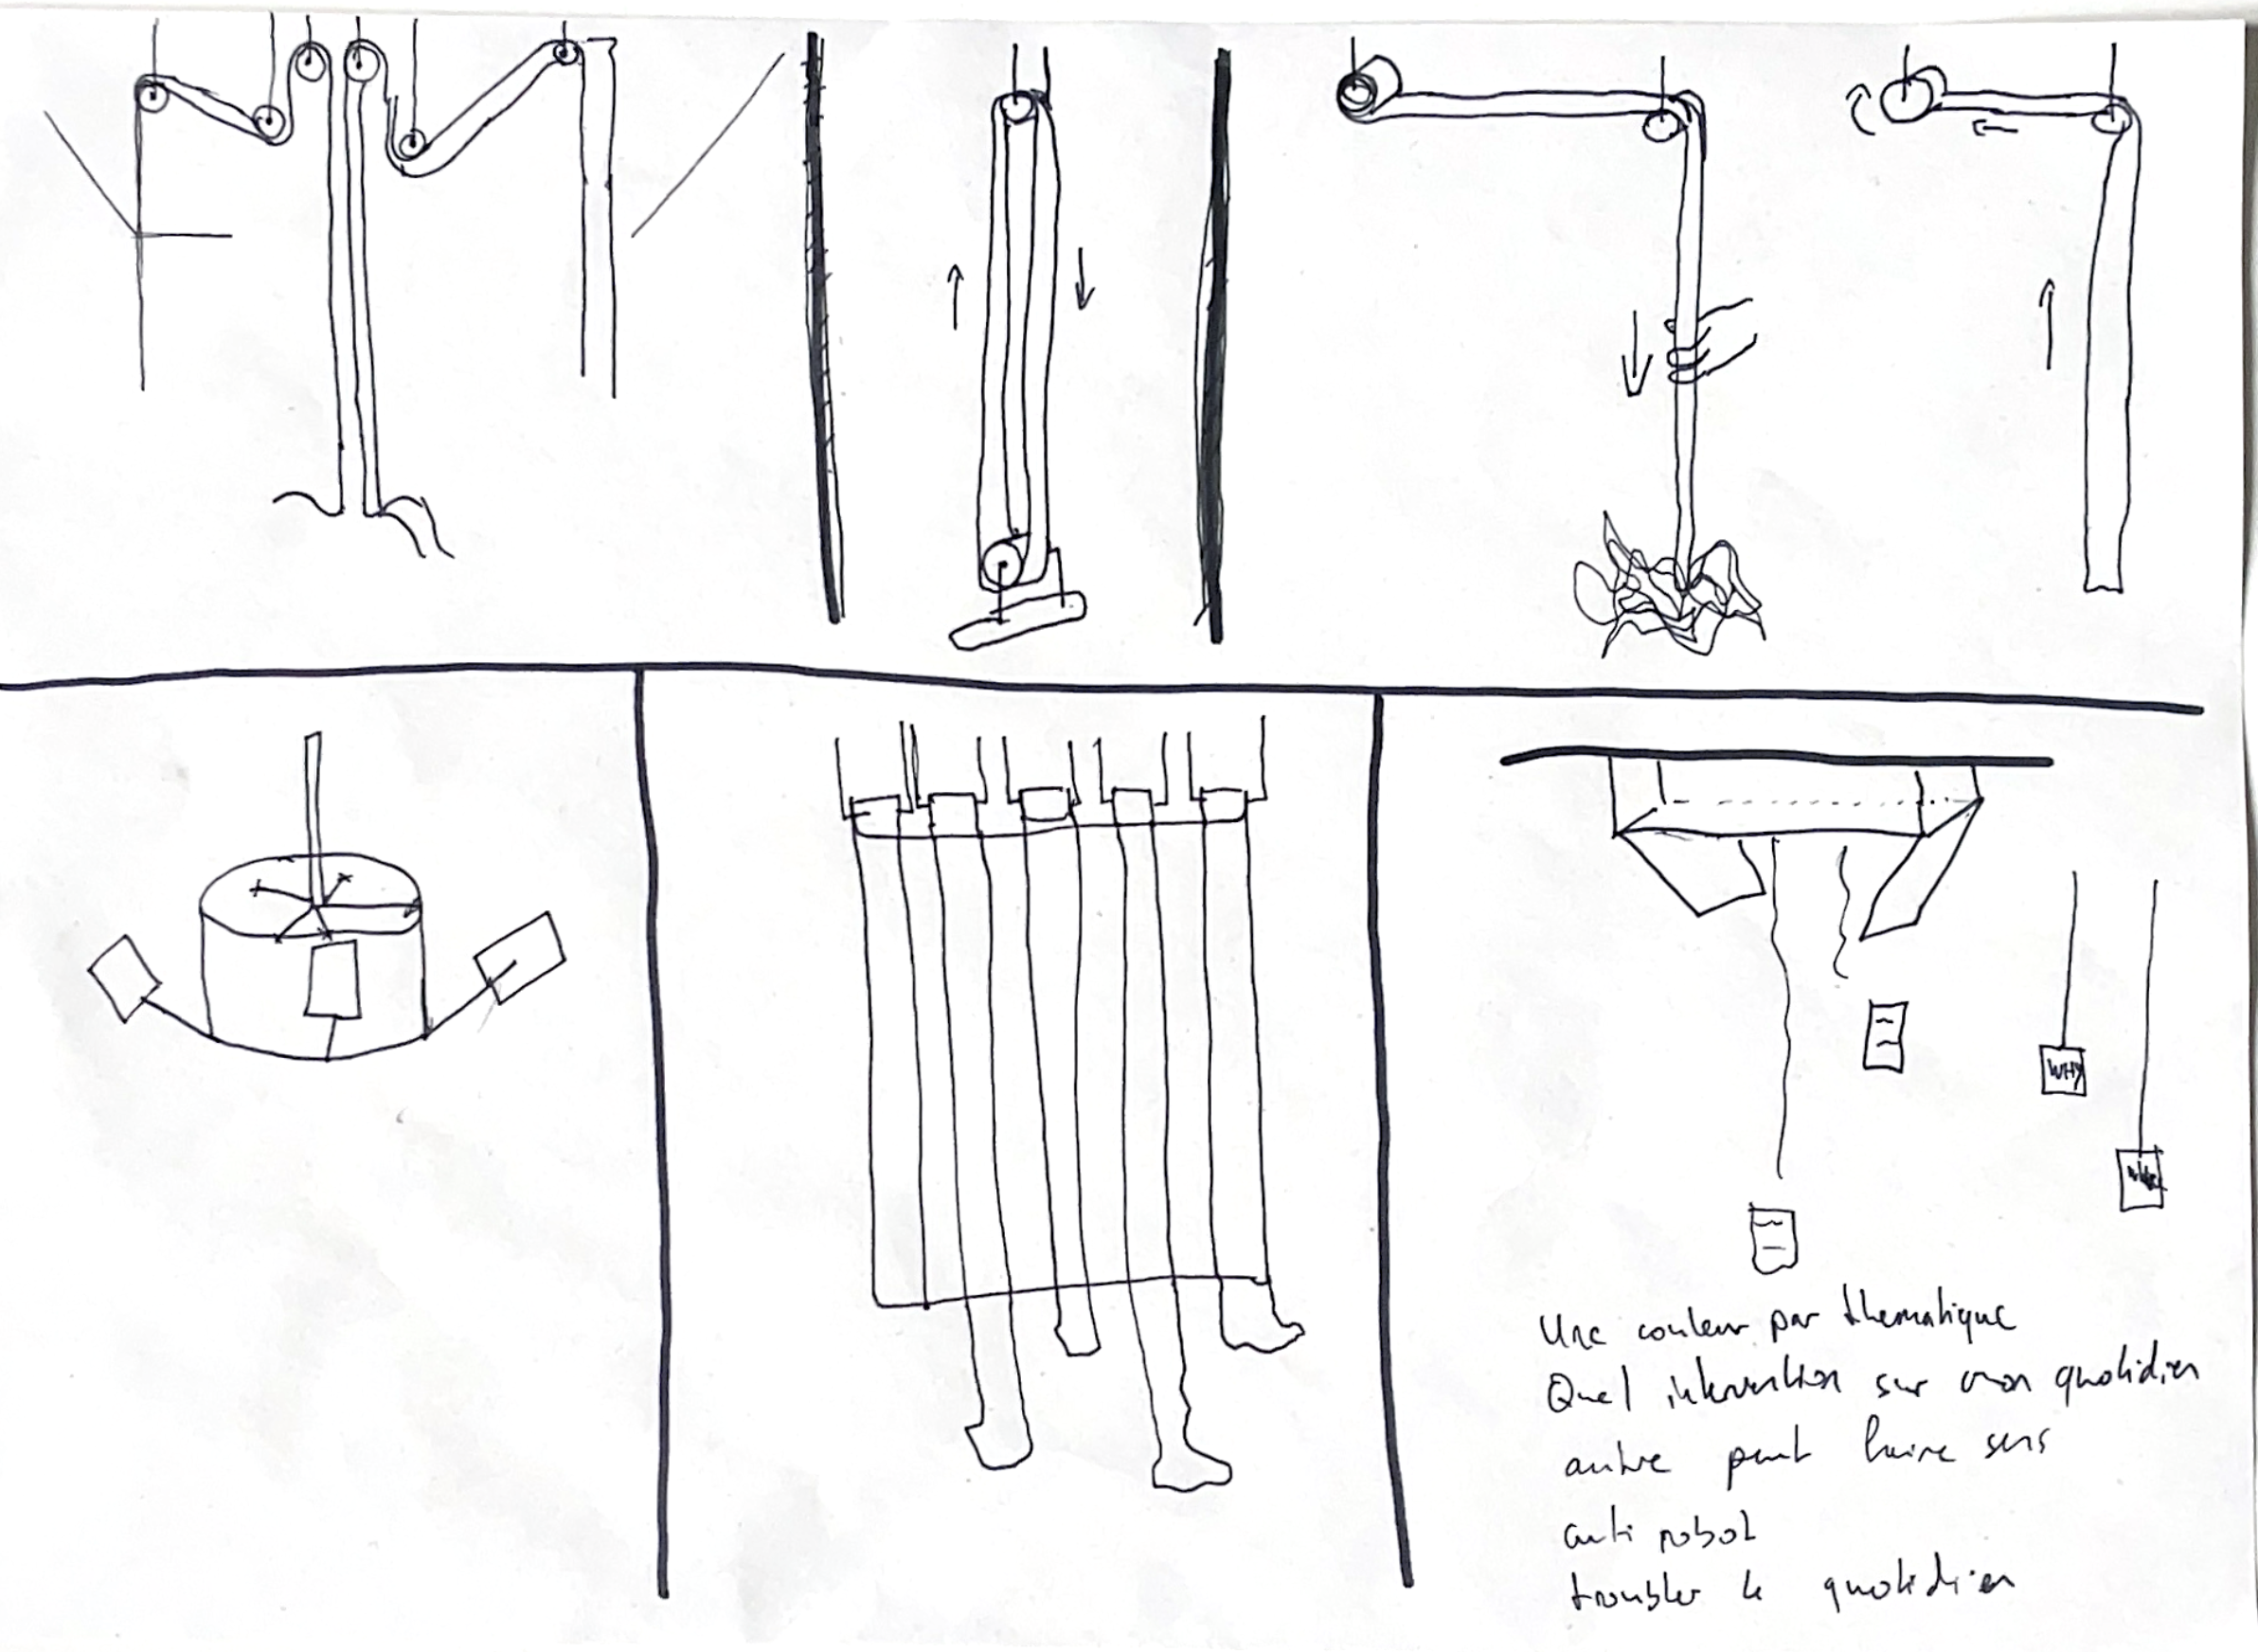 WHY
Une couleur par thématique
Quel intervention sur mon quotidien
autre peut faire sens
anti robot
troubler le quotidien